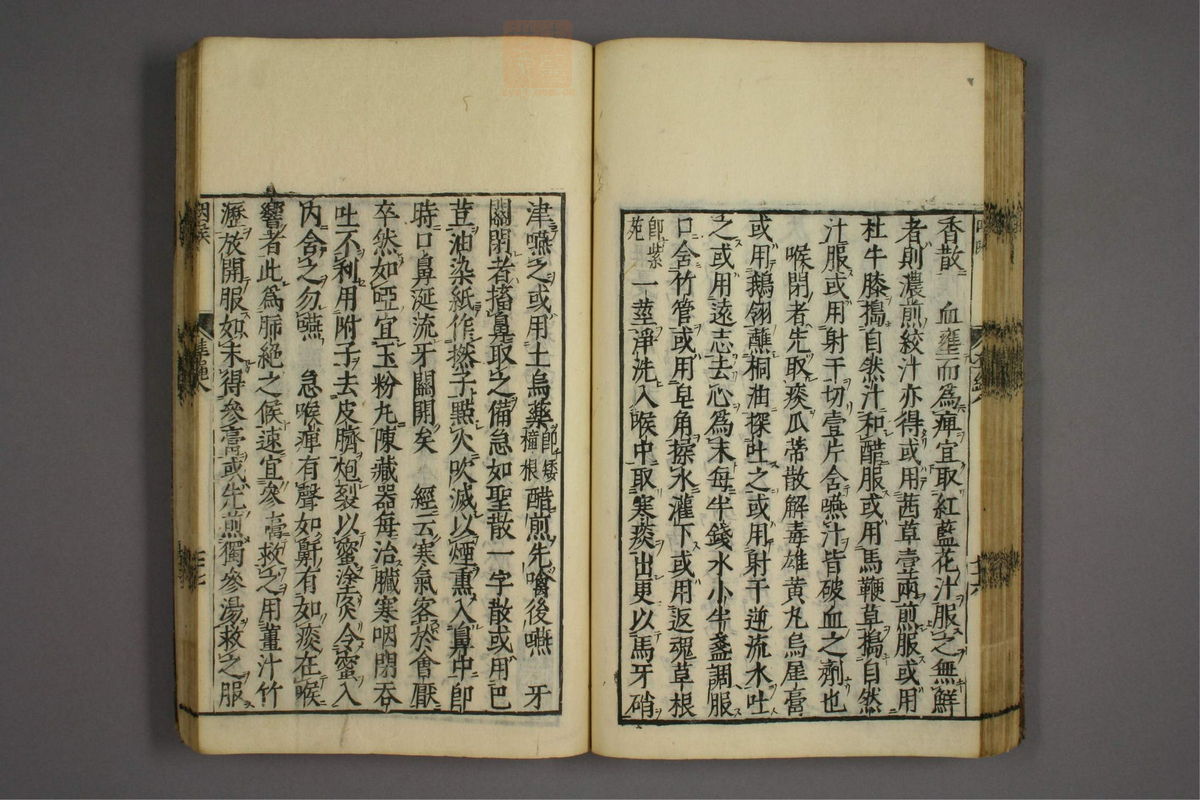 香散　血壅而爲痺宜取紅藍花汁服之無鮮
者則濃煎絞汁亦得或用茜草壹兩煎服或用
杜牛膝搗自然汁和醋服或用馬鞭草搗自然
汁服或用射干切壹片含嚥汁皆破血之劑也
喉閉者先取痰瓜蒂散解毒雄黃丸烏犀膏
或用鵝翎蘸桐油探吐之或用射干逆流水吐
之或用遠志去心爲末每半錢水小半盞調服
口含竹管或用皂角揉水灌下或用返魂草根
即紫
苑
一莖淨洗入喉中取寒痰出更以馬牙硝
津嚥之或用土烏藥
即矮
樟根
醋煎先噙後嚥　牙
關閉者搐鼻取之備急如聖散一字散或用巴
荳油染紙作撚子點火吹滅以煙熏入鼻中即
時口鼻涎流牙關開矣　經云寒氣客於會厭
卒然如啞宜玉粉丸陳藏器每治臟寒咽閉吞
吐不利用附子去皮臍炮裂以蜜塗炙令蜜入
內含之勿嚥　急喉痺有聲如鼾有如痰在喉
響者此爲肺絕之候速宜參膏救之用薑汁竹
瀝放開服如未得參膏或先煎獨參湯救之服
咽喉
準繩